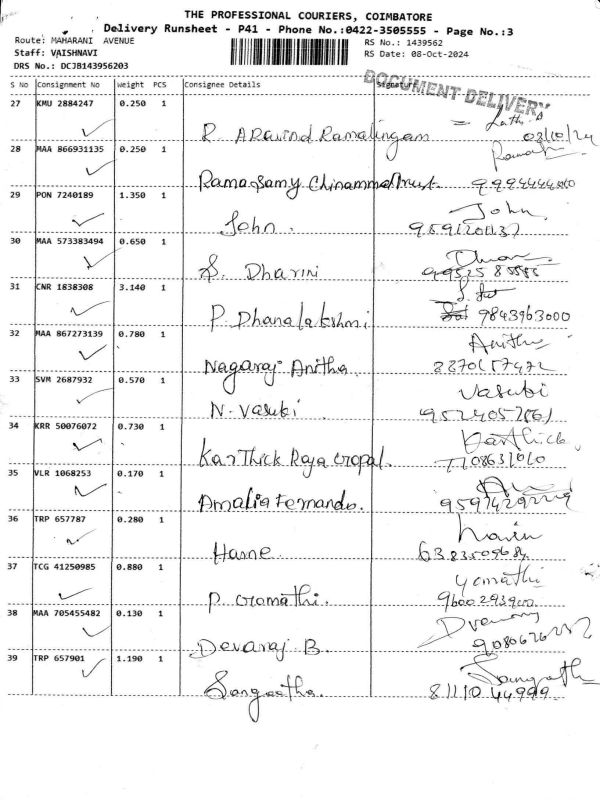 THE PROFESSIONAL COURIERS, COIMBATORE
Delivery Runsheet - P41 - Phone No.:0422-3505555 - Page No.:3
Route: MAHARANI AVENUE RS No.: 1439562
Staff: VAISHNAVI RS Date: 08-Oct-2024
DRS No.: DCJB143956203
S No Consignment No Weight PCS Consignee Details Signature
DOCUMENT DELIVERY
27 KMU 2884247 0.250 1
R Aravind Ramalingam
28 MAA 866931135 0.250 1
Ramasamy Chinammal Trust.
29 PON 7240189 1.350 1 John
John.
30 MAA 573383494 0.650 1
S. Dharini
31 CNR 1838308 3.140 1
P. Dhanalakshmi 9843963000
32 MAA 867273139 0.780 1 Anitha
Nagaraj Anitha
33 SVM 2687932 0.570 1 Vasuki
N. Vasuki
34 KRR 50076072 0.730 1 Karthick
Karthick Raja Gopal.
35 VLR 1068253 0.170 1
Amalia Fernando.
36 TRP 657787 0.280 1
37 TCG 41250985 0.880 1 Gomathi
P Gomathi. 9600293900
38 MAA 705455482 0.130 1
Devaraj B.
39 TRP 657901 1.190 1 Sangeetha
Sangeetha. 81110 44999